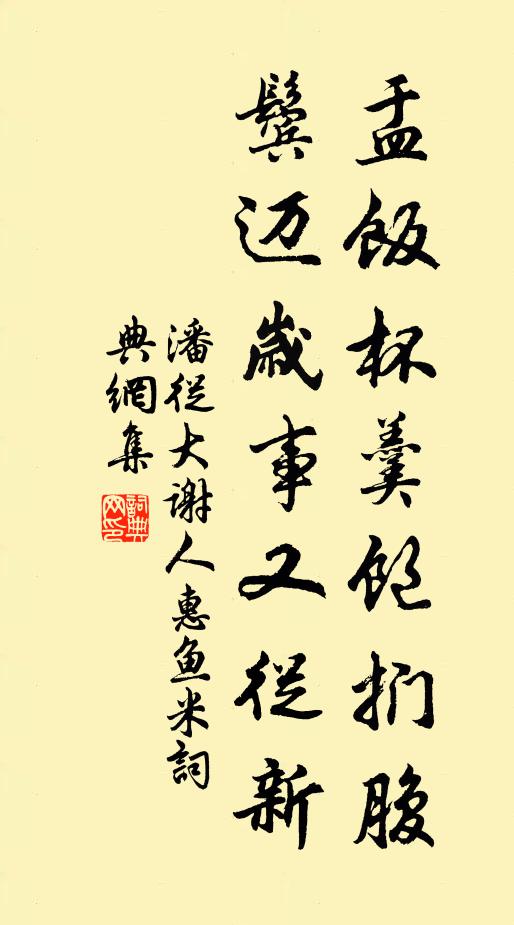 盂飯杯羹飽捫腹
鬓迈歲事又從新
潘從大謝人惠鱼米詞
典網集
詞典网印